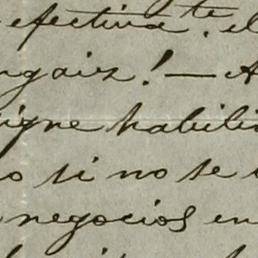 efectiva. el
ngaiz! — A
igne habili
o si no se
negocios en